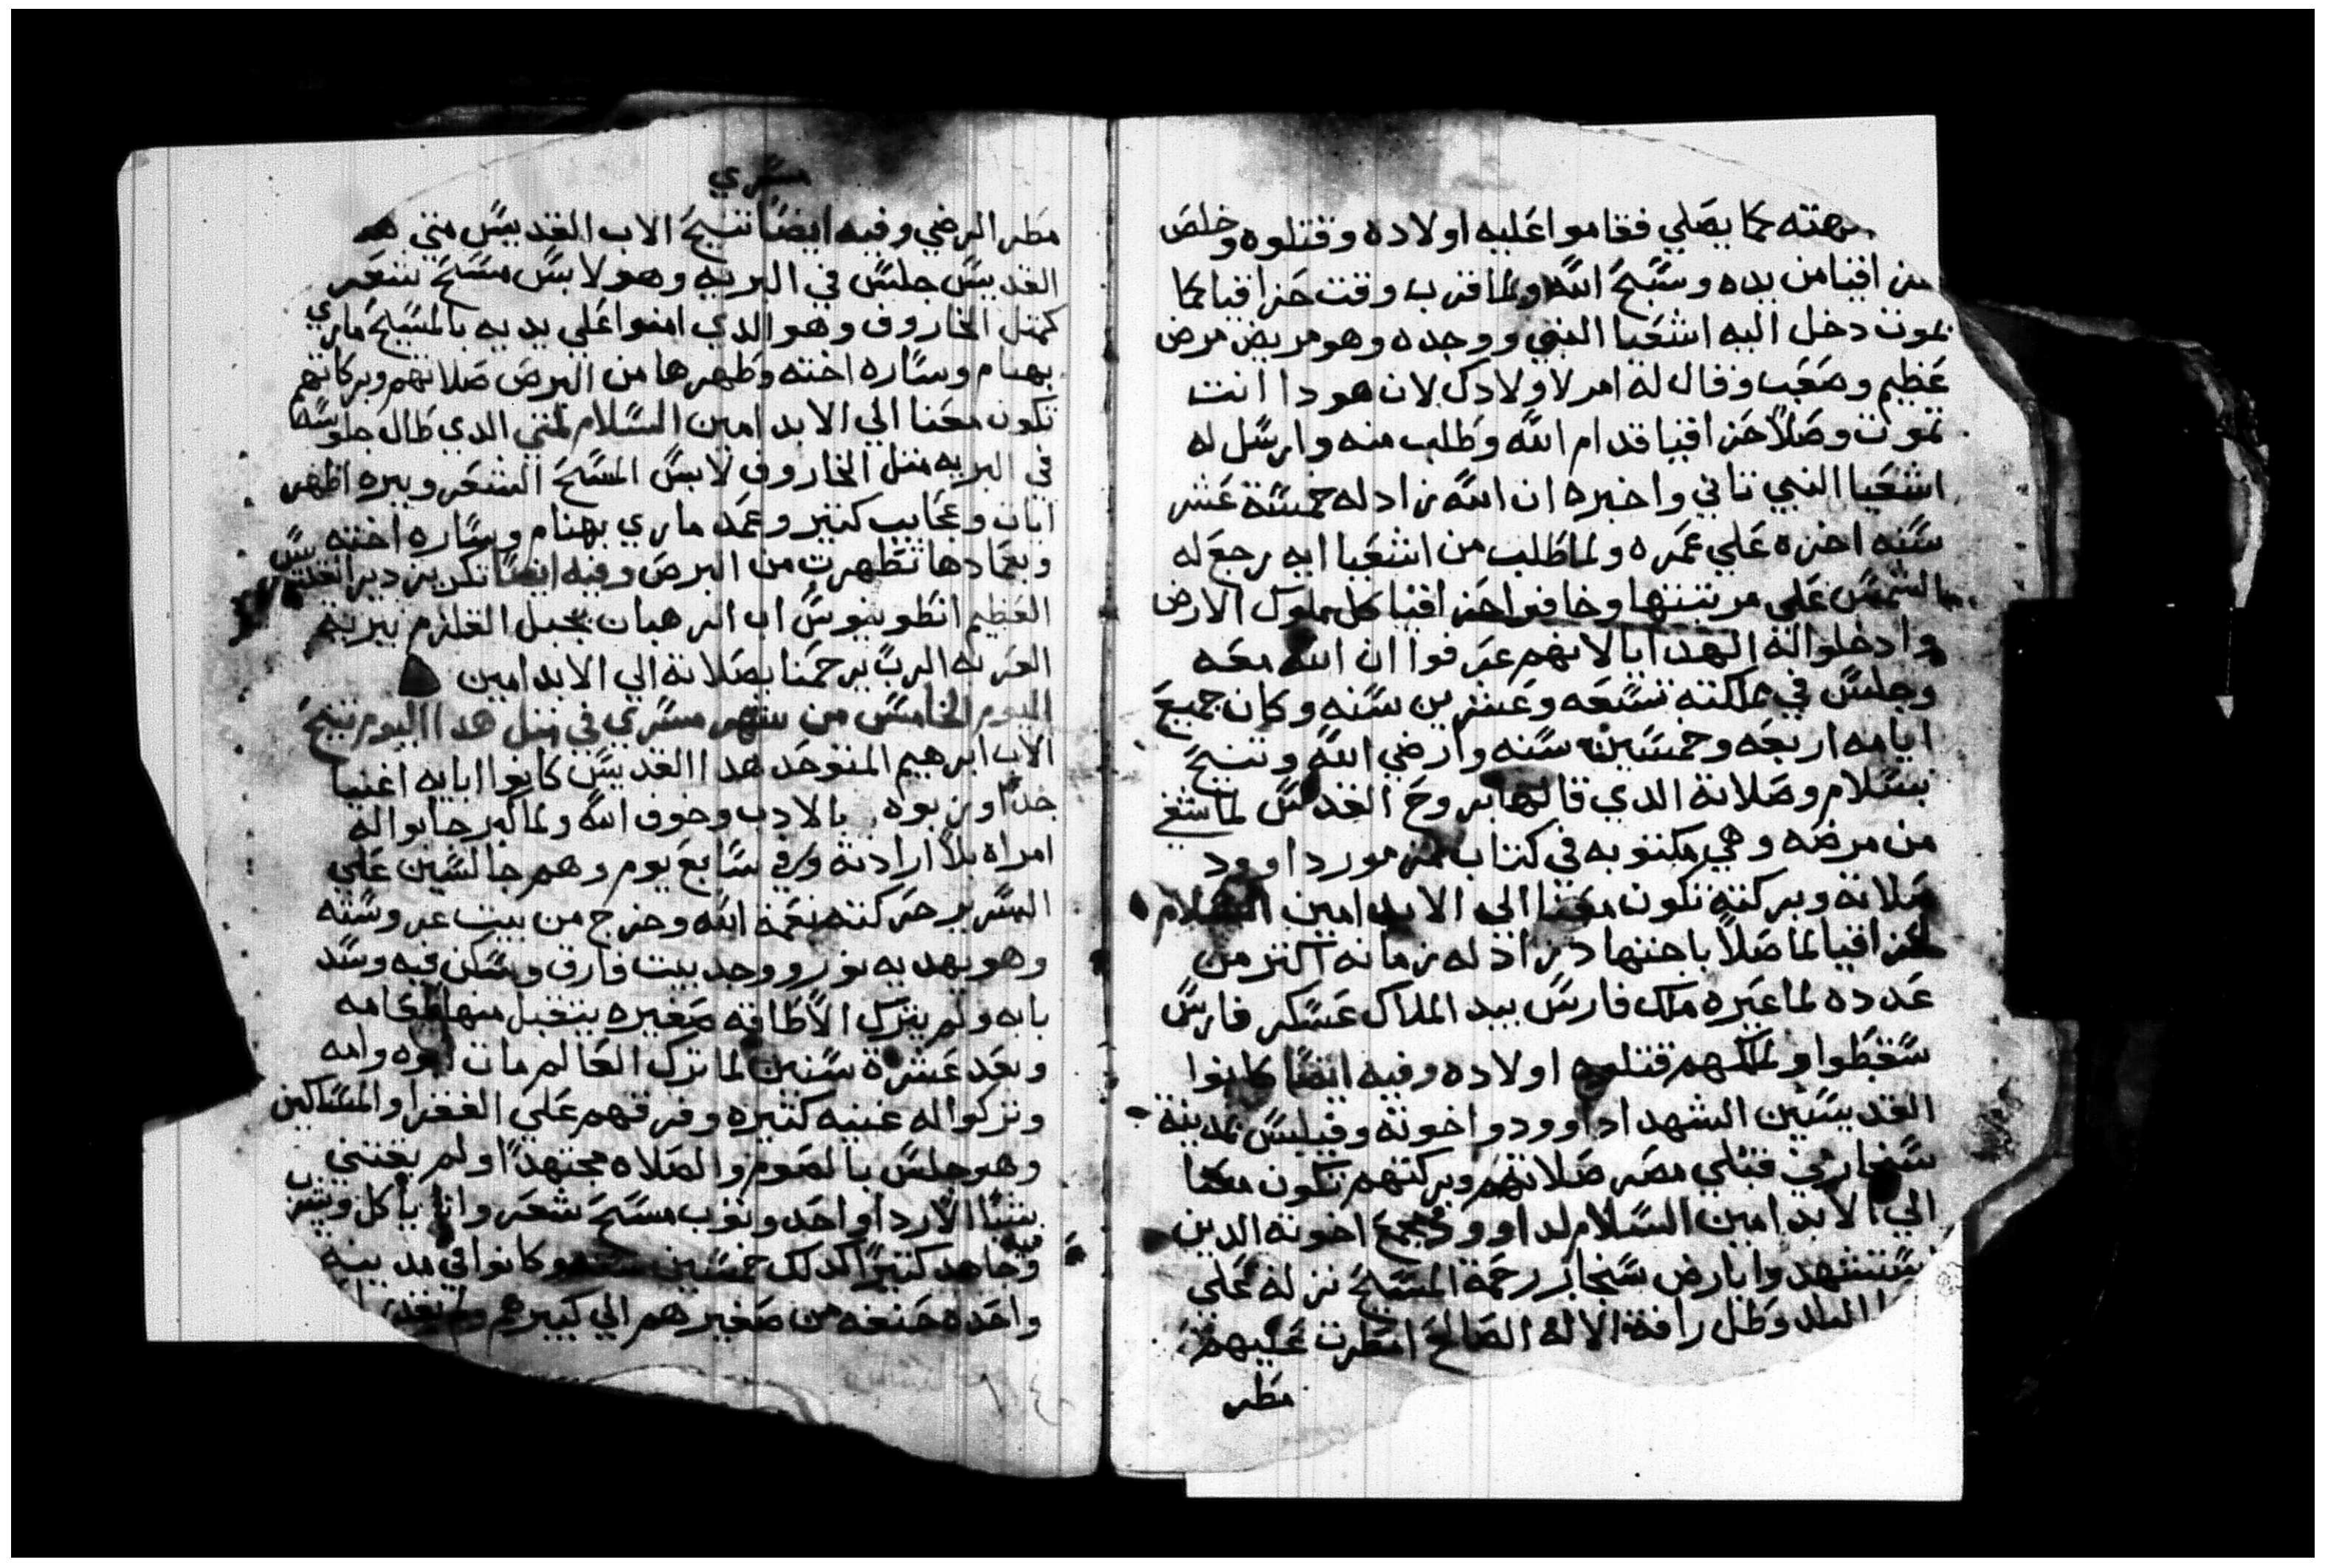 كما يصلي فقاموا عليه اولاده وقتلوه وخلص
حزاقيا من يده وسبح الله ولما قرب وقت حزاقيا كما
يموت دخل اليه اشعيا النبي ووجده وهو مريض مرض
عظيم وصعب وقال له امر لاولادك لان هودا انت
تموت وصلا حزاقيا قدام الله وطلب منه وارسل له
اشعيا النبي تاني واخبره ان الله زاد له خمسة عشر
سنه اخره علي عمره ولما طلب من اشعيا ايه رجع له
الشمس علي مرتبتها وخافوا حزاقيا كل ملوك الارض
وادخلوا له الهدايا لانهم عرفوا ان الله معه
وجلس في مملكته تسعه وعشرين سنه وكان جميع
ايامه اربعه وخمسين سنه وارضي الله وتنيح
بسلام وصلاته الدي قالها بروح القدس لما شفي
من مرضه وهي مكتوبه في كتاب مزمور داوود
صلاته وبركته تكون معنا الي الابد امين السلام
لحزاقيا لما صلا باجتهاد زاد له زمانه اكتر من
عدده لما عيره ملك فارس بيد الملاك عسكر فارس
سقطوا ولملكهم قتلوه اولاده وفيه ايضا كانوا
القديسين الشهدا داوود واخوته وفيلبس بمدينة
سنجار في قبلي مصر صلاتهم وبركتهم تكون معنا
الي الابد امين السلام لداوود وجميع اخوته الدين
استشهدوا بارض سنجار رحمة المسيح نزله علي
البلد وطل رافة الاله الصالح امطرت عليهم
مطر
مسري
مطر الرضي وفيه ايضا تنيح الاب القديس متي هد
القديس جلس في البريه وهو لابس مسح شعر
كمتل الخاروف وهو الدي امنوا علي يديه بالمسيح ماري
بهنام وساره اخته وطهرها من البرص صلاتهم وبركاتهم
تكون معنا الي الابد امين السلام لمتي الدي طال جلوسه
في البريه متل الخاروف لابس المسح الشعر وبيره اظهر
ايات وعجايب كتير وعمد ماري بهنام وساره اخته
وبعمادها تطهرت من البرص وفيه ايضا تكريز دير القديس
العظيم انطونيوس اب الرهبان بجبل القلزم ببرية
العربه الرب يرحمنا بصلاته الي الابد امين
اليوم الخامس من شهر مسري في متل هدا اليوم تنيح
الاب ابرهيم المتوحد هدا القديس كانوا ابايه اغنيا
جدا وربوه بالادب وخوف الله ولما كبر جابوا له
امراه بلا ارادته وفي سابع يوم وهم جالسين علي
السرير حركته نعمة الله وخرج من بيت عروسته
وهو يهديه نور ووجد بيت فارق وسكن فيه وسد
بابه ولم يترك الا طاقه صغيره يتقبل منها طعامه
وبعد عشرة سنين لما ترك العالم مات ابوه وامه
وتركوا له غنيه كتيره وفرقهم علي الفقرا والمساكين
وهو جلس بالصوم والصلاه مجتهدا ولم يقتني
شيا الا ردا واحد وتوب مسح شعر وانا ياكل ويشرب
فيه
وجاهد كتيرا كدلك خمسين سنه وكانوا في مدينه
واحده صنعه من صغيرهم الي كبيرهم